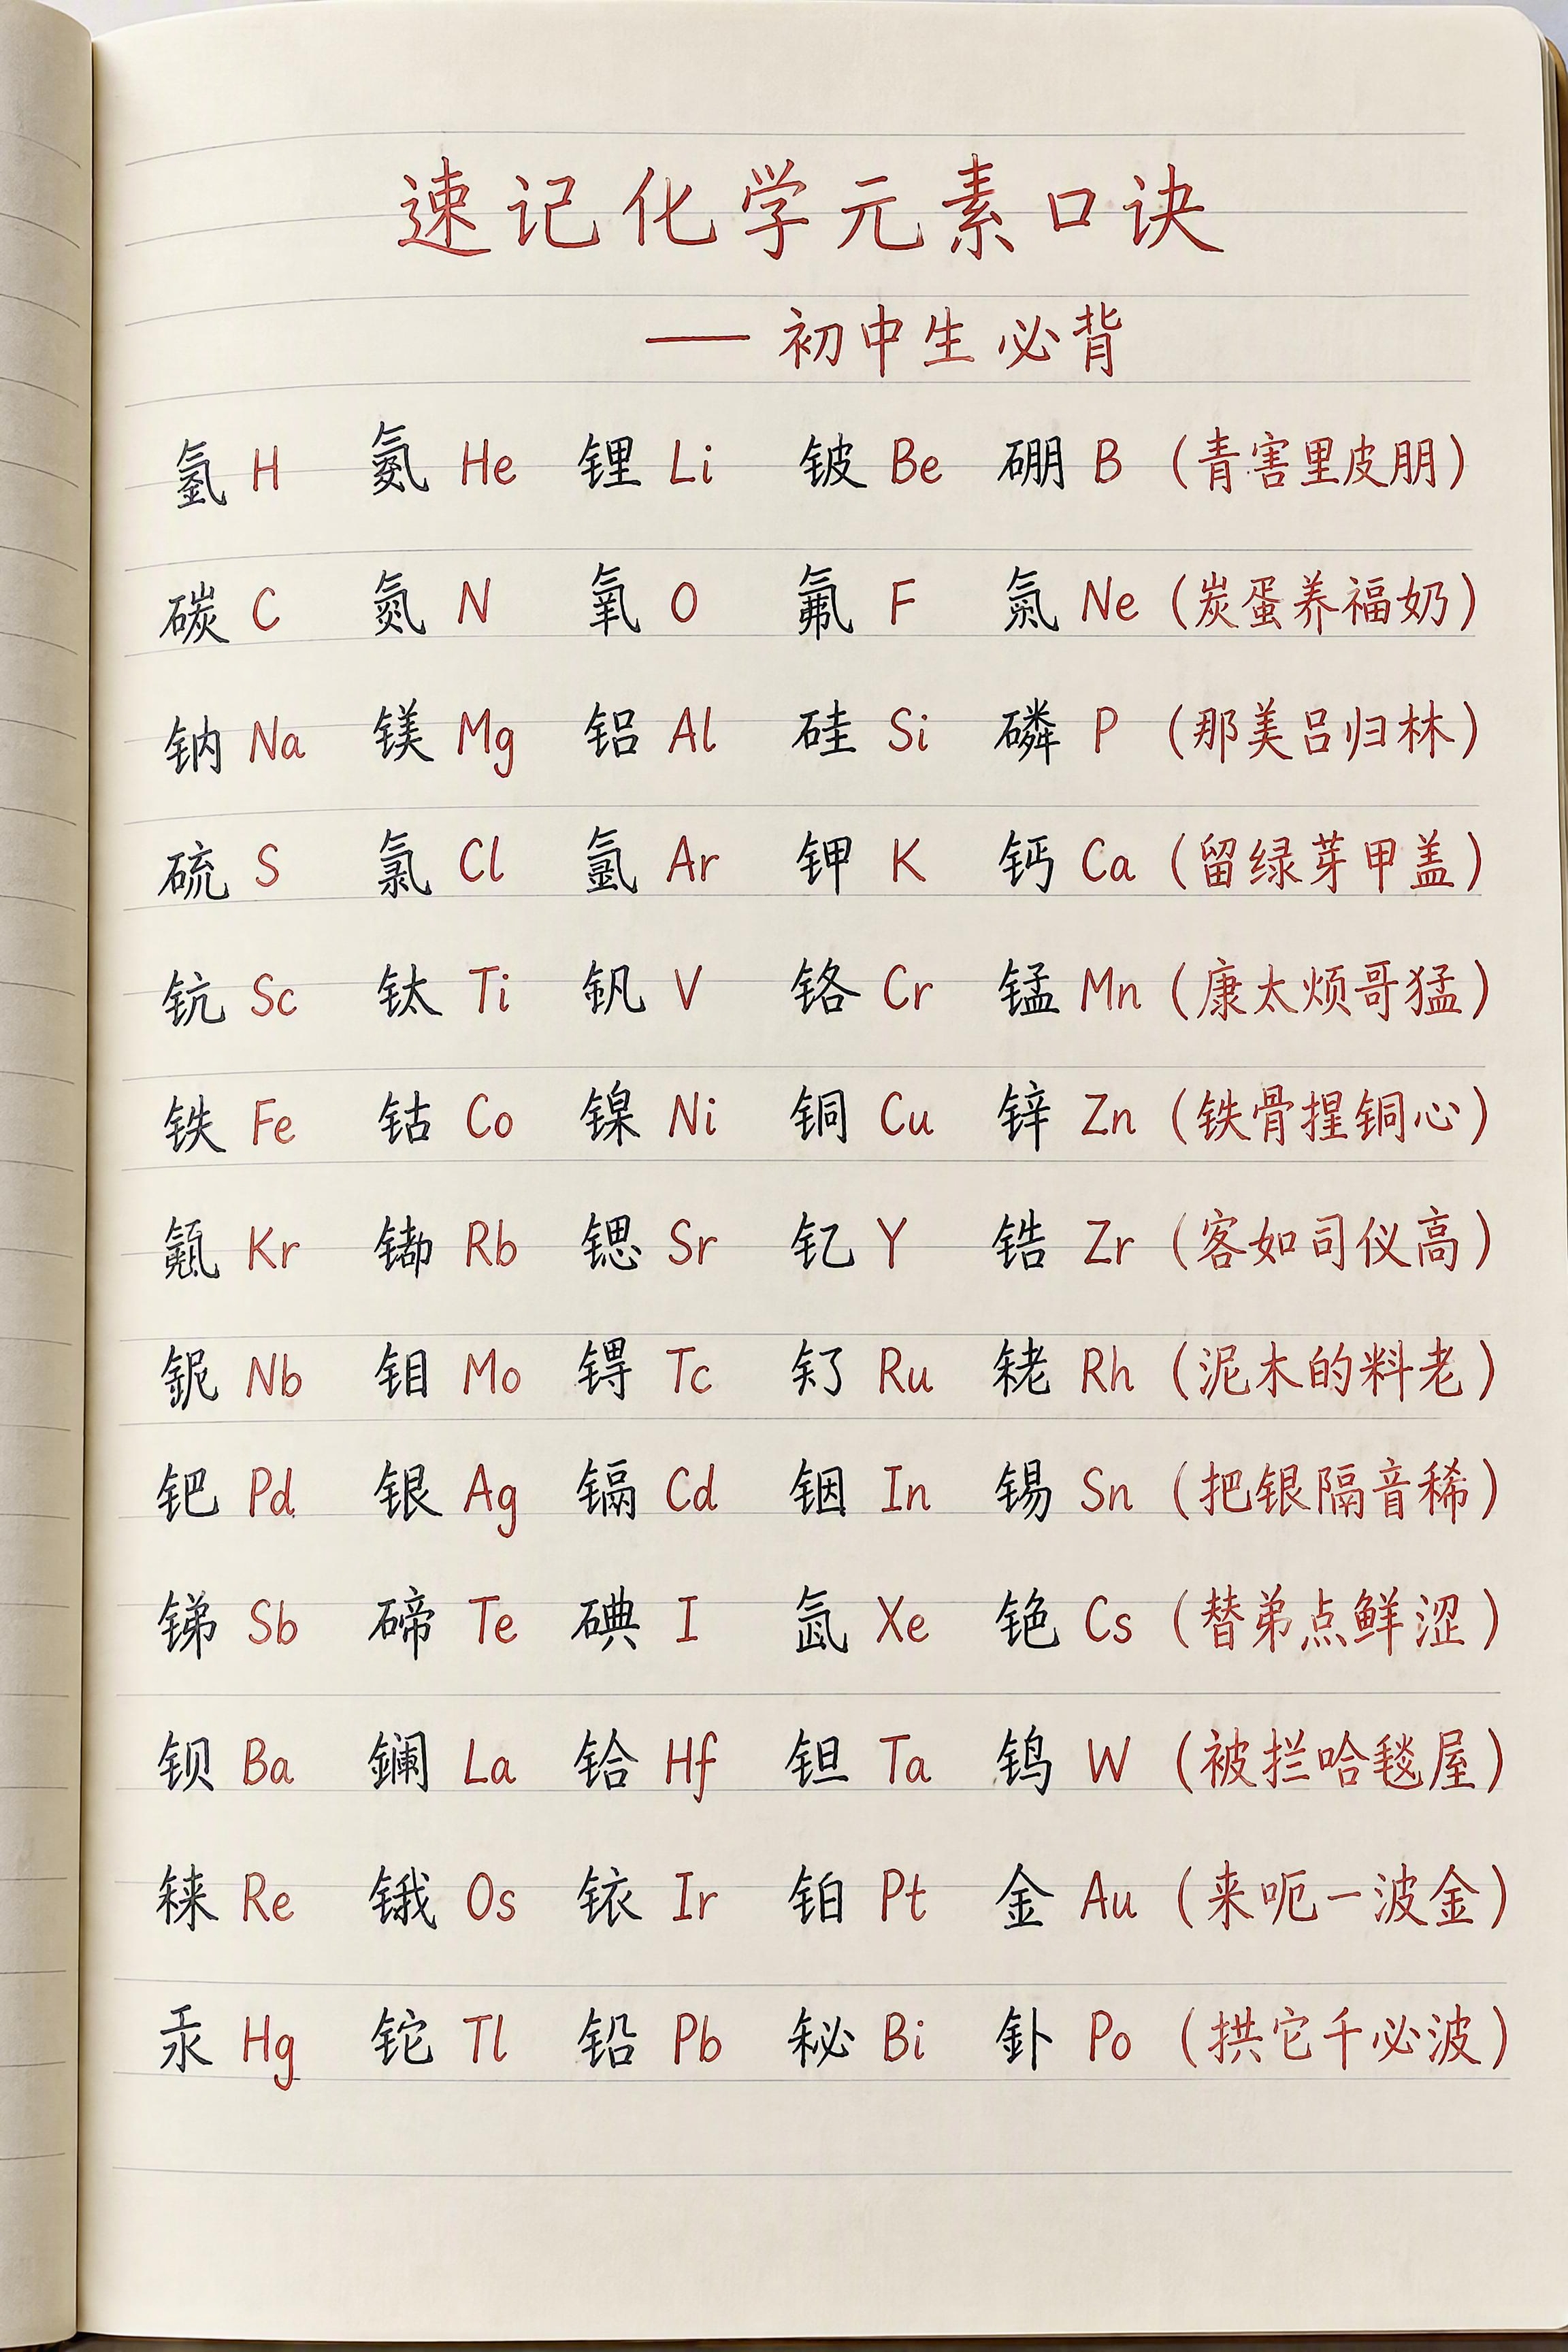 速记化学元素口诀
—— 初中生必背
氢 H 氦 He 锂 Li 铍 Be 硼 B (青害里皮朋)
碳 C 氮 N 氧 O 氟 F 氖 Ne (炭蛋养福奶)
钠 Na 镁 Mg 铝 Al 硅 Si 磷 P (那美吕归林)
硫 S 氯 Cl 氩 Ar 钾 K 钙 Ca (留绿芽甲盖)
钪 Sc 钛 Ti 钒 V 铬 Cr 锰 Mn (康太烦哥猛)
铁 Fe 钴 Co 镍 Ni 铜 Cu 锌 Zn (铁骨捏铜心)
氪 Kr 铷 Rb 锶 Sr 钇 Y 锆 Zr (客如司仪高)
铌 Nb 钼 Mo 锝 Tc 钌 Ru 铑 Rh (泥木的料老)
钯 Pd 银 Ag 镉 Cd 铟 In 锡 Sn (把银隔音稀)
锑 Sb 碲 Te 碘 I 氙 Xe 铯 Cs (替弟点鲜涩)
钡 Ba 镧 La 铪 Hf 钽 Ta 钨 W (被拦哈毯屋)
铼 Re 锇 Os 铱 Ir 铂 Pt 金 Au (来呃一波金)
汞 Hg 铊 Tl 铅 Pb 铋 Bi 钋 Po (拱它千必波)